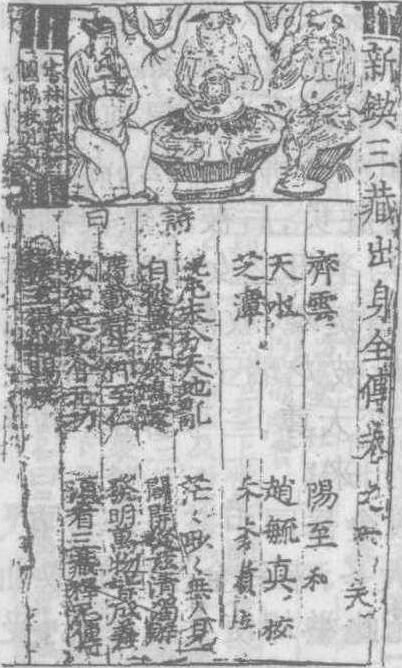 新鍥三藏出身全傳卷之
齊雲 陽至和
天水 趙毓真 校
芝潭 朱蒼嶺
詩曰
混沌未分天地亂 茫〻渺〻無人見
自從盤古破鴻濛 開闢從茲清濁辨
覆載群生仰至仁 發明萬物皆成善
欲知造化會元功 須看三藏釋厄傳